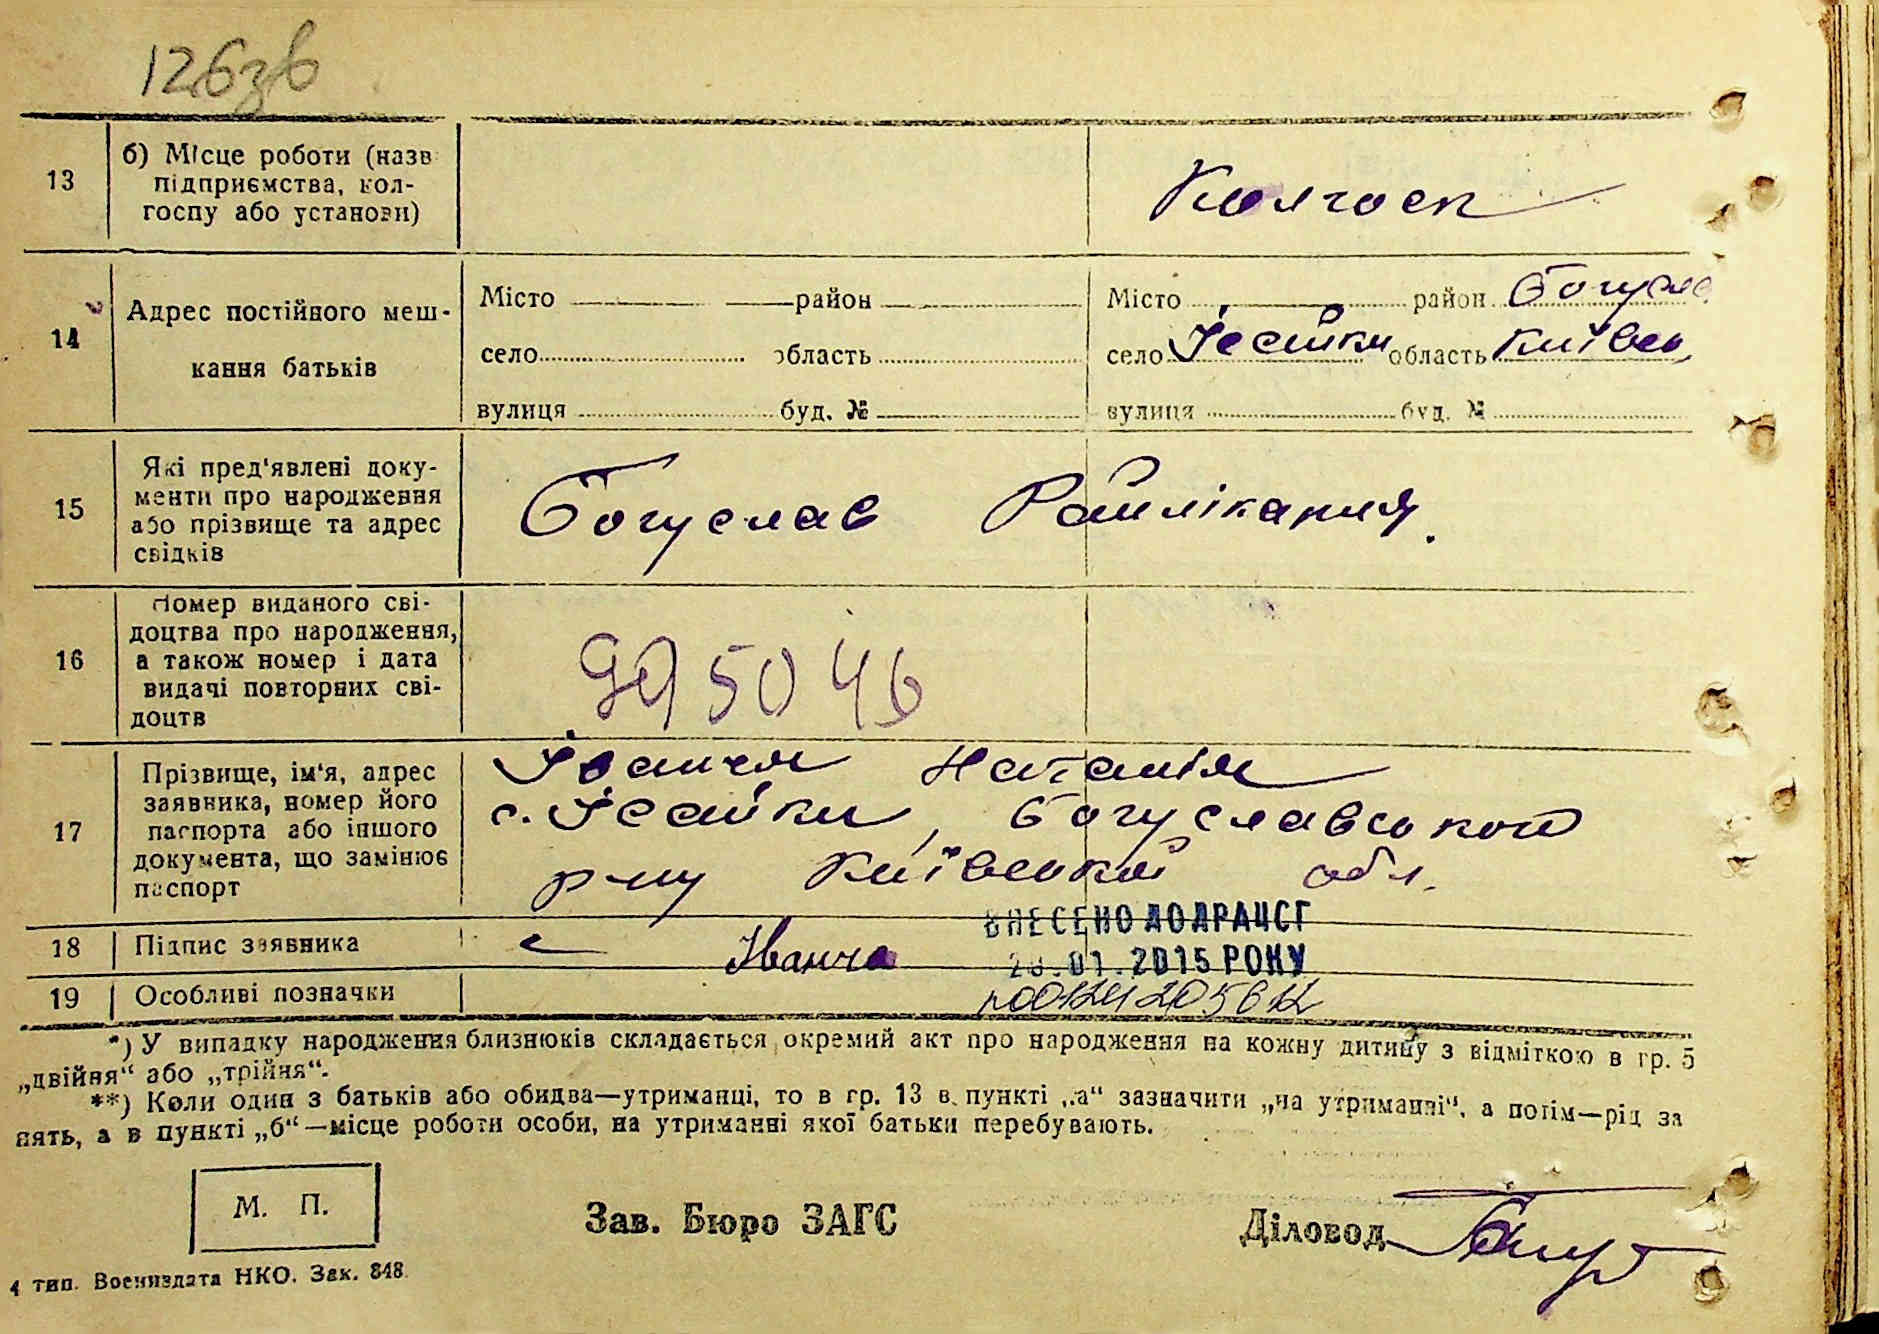 126зв
13
б) Місце роботи (назв
підприємства, кол-
госпу або установи)
Колгосп
14
Адрес постійного меш-
кання батьків
Місто район
село область
вулиця буд. №
Місто район Богусла
село Ісайки область Київсь
вулиця буд. №
15
Які пред'явлені доку-
менти про народження
або прізвище та адрес
свідків
Богуслав Райлікарня.
16
Номер виданого сві-
доцтва про народження,
а також номер і дата
видачі повторних сві-
доцтв
995046
17
Прізвище, ім'я, адрес
заявника, номер його
паспорта або іншого
документа, що замінює
паспорт
Іванча Наталія
с. Ісайки, Богуславського
р-ну Київської обл.
18
Підпис заявника
Іванча
ВНЕСЕНО ДО ДРАЦСГ
.01.2015 РОКУ
19
Особливі позначки
*) У випадку народження близнюків складається окремий акт про народження на кожну дитину з відміткою в гр. 5
„двійня“ або „трійня“.
**) Коли один з батьків або обидва—утриманці, то в гр. 13 в пункті „а“ зазначити „на утриманні“, а потім—рід за
нять, а в пункті „б“—місце роботи особи, на утриманні якої батьки перебувають.
М. П.
Зав. Бюро ЗАГС
Діловод
4 тип. Воениздата НКО. Зак. 848.